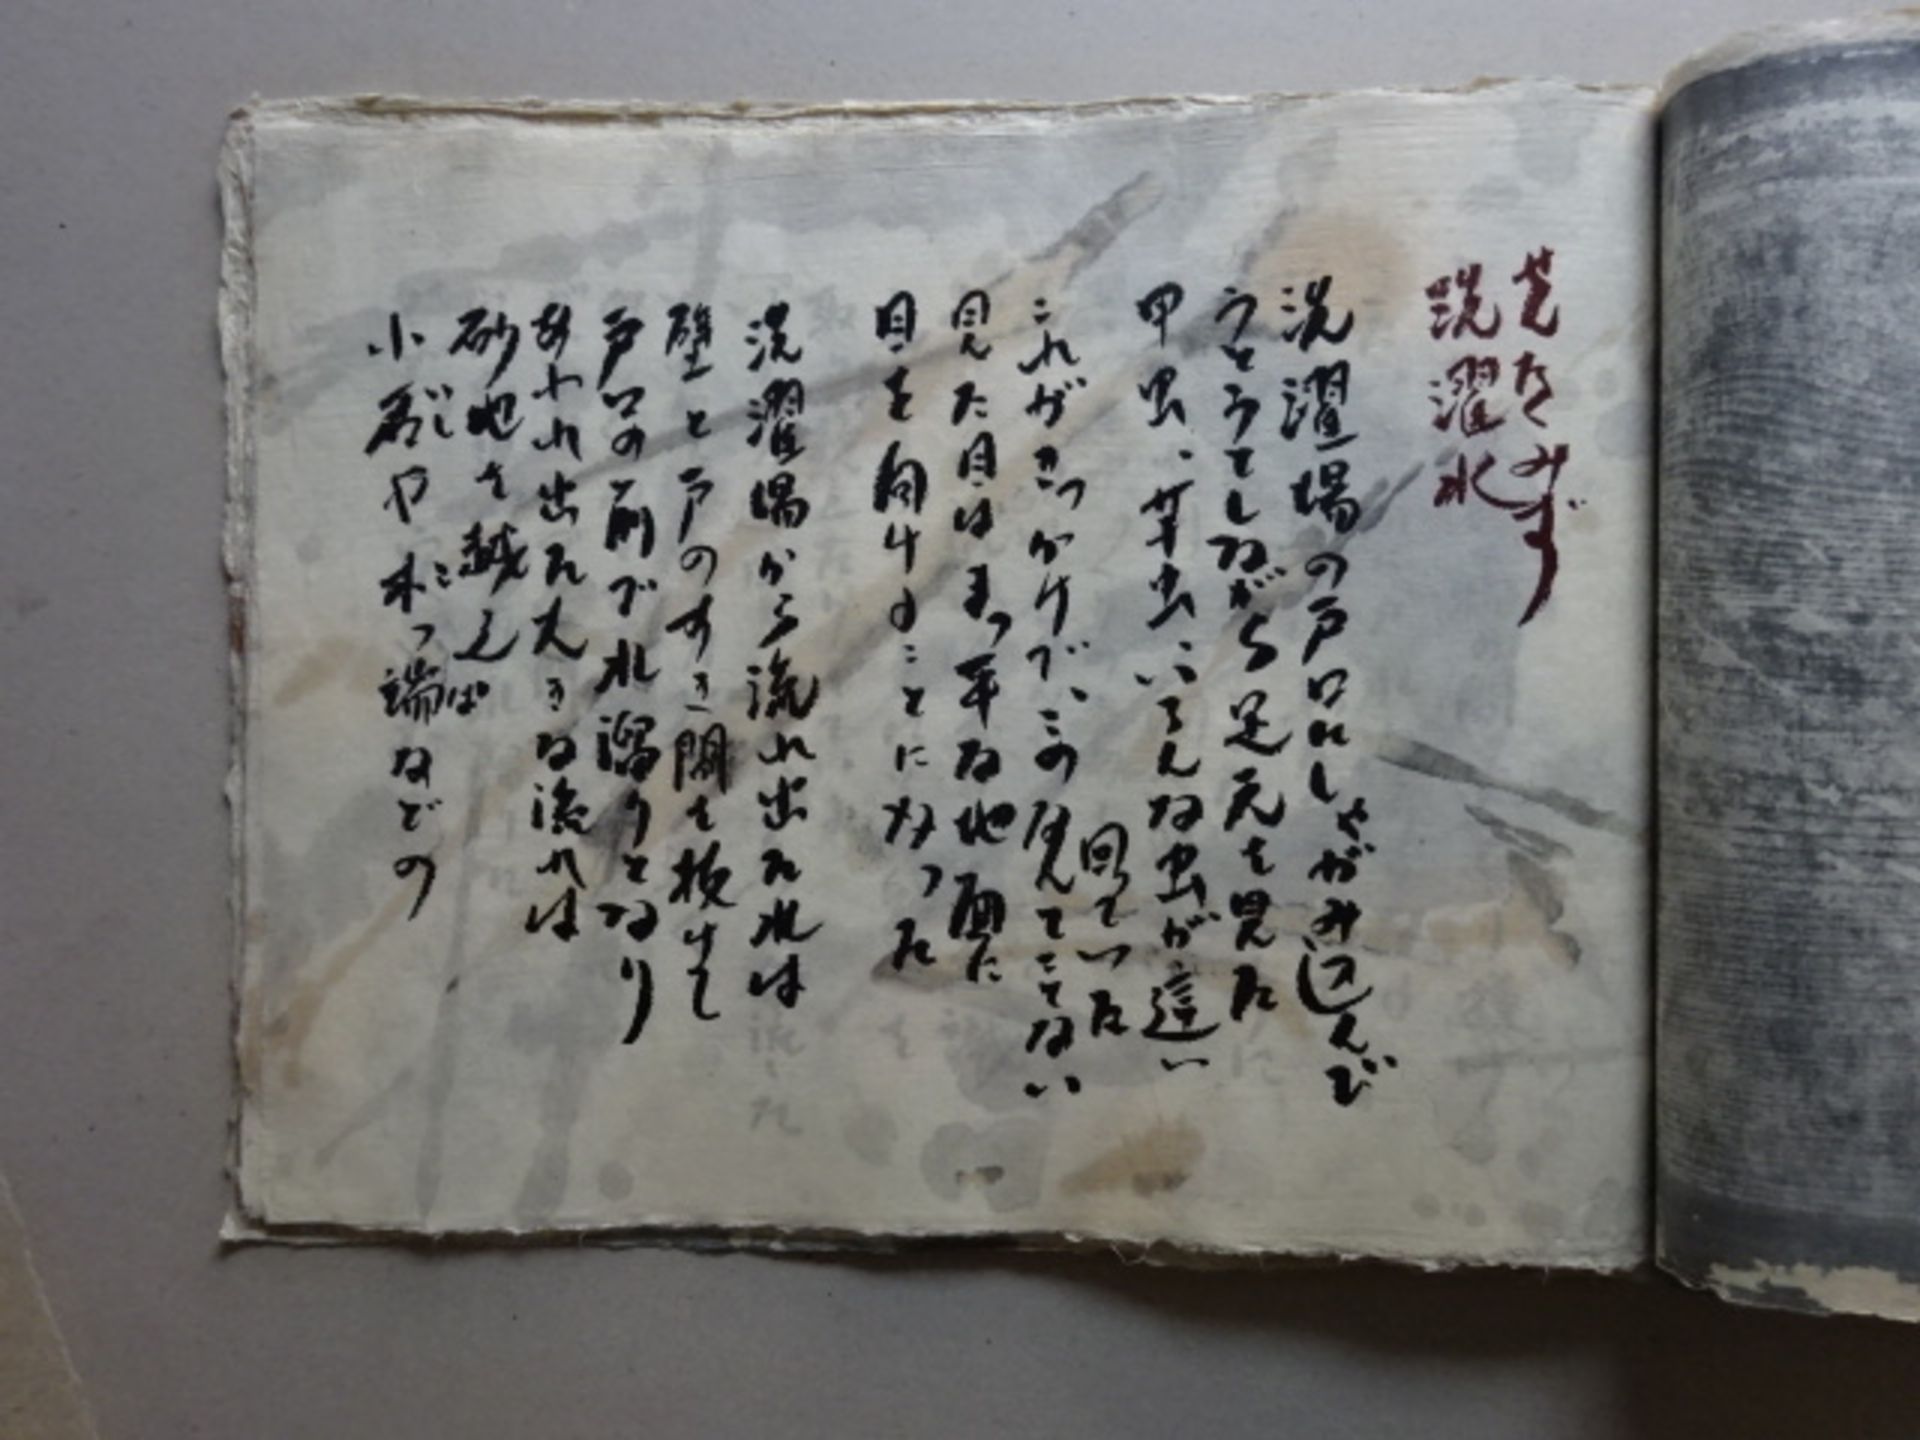 せんたくみず
洗濯水
洗濯場の戸口にしゃがみ込んで
うとうとしながら足元を見た
甲虫、芋虫、いろんな虫が這い
回っていた
これがきっかけで、この見てとてない
見た目はまっ平な地面に
目を向けることになった
洗濯場から流れ出た水は
壁と戸のすき間を抜けて
戸口の前で水溜りとなり
あふれ出た大きな流れは
砂地を越えれば
小石や木っ端などの